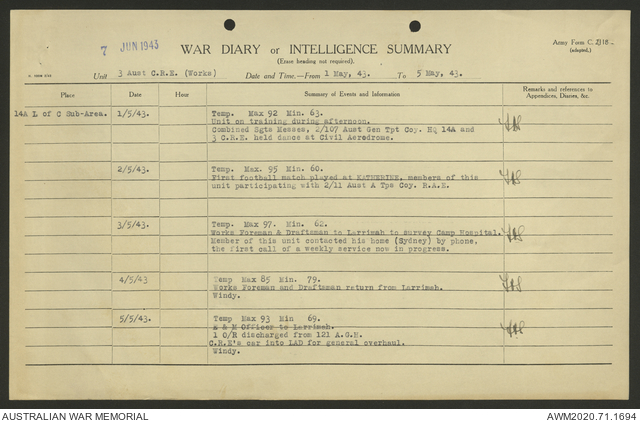 7 JUN 1943
WAR DIARY or INTELLIGENCE SUMMARY
Army Form C. 2118.
(adapted.)
(Erase heading not required).
Unit 3 Aust C.R.E. (Works) Date and Time.—From 1 May, 43. To 5 May, 43.
Place Date Hour Summary of Events and Information Remarks and references to
Appendices, Diaries, &c.
14A L of C Sub-Area. 1/5/43. Temp. Max 92 Min. 63.
Unit on training during afternoon.
Combined Sgts Messes, 2/107 Aust Gen Tpt Coy. HQ 14A and
3 C.R.E. held dance at Civil Aerodrome.
2/5/43. Temp. Max. 95 Min. 60.
First football match played at KATHERINE, members of this
unit participating with 2/11 Aust A Tps Coy. R.A.E.
3/5/43. Temp. Max 97. Min. 62.
Works Foreman & Draftsman to Larrimah to survey Camp Hospital.
Member of this unit contacted his home (Sydney) by phone,
the first call of a weekly service now in progress.
4/5/43 Temp Max 85 Min. 79.
Works Foreman and Draftsman return from Larrimah.
Windy.
5/5/43. Temp Max 93 Min 69.
E & M Officer to Larrimah.
1 O/R discharged from 121 A.G.H.
C.R.E's car into LAD for general overhaul.
Windy.
AUSTRALIAN WAR MEMORIAL
AWM2020.71.1694